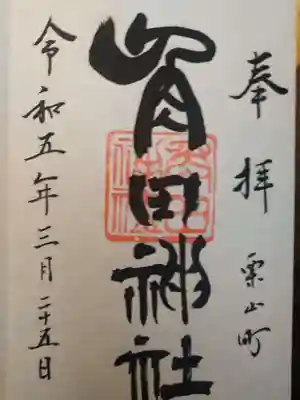 奉拝 栗山町
角田神社
令和五年三月二十五日